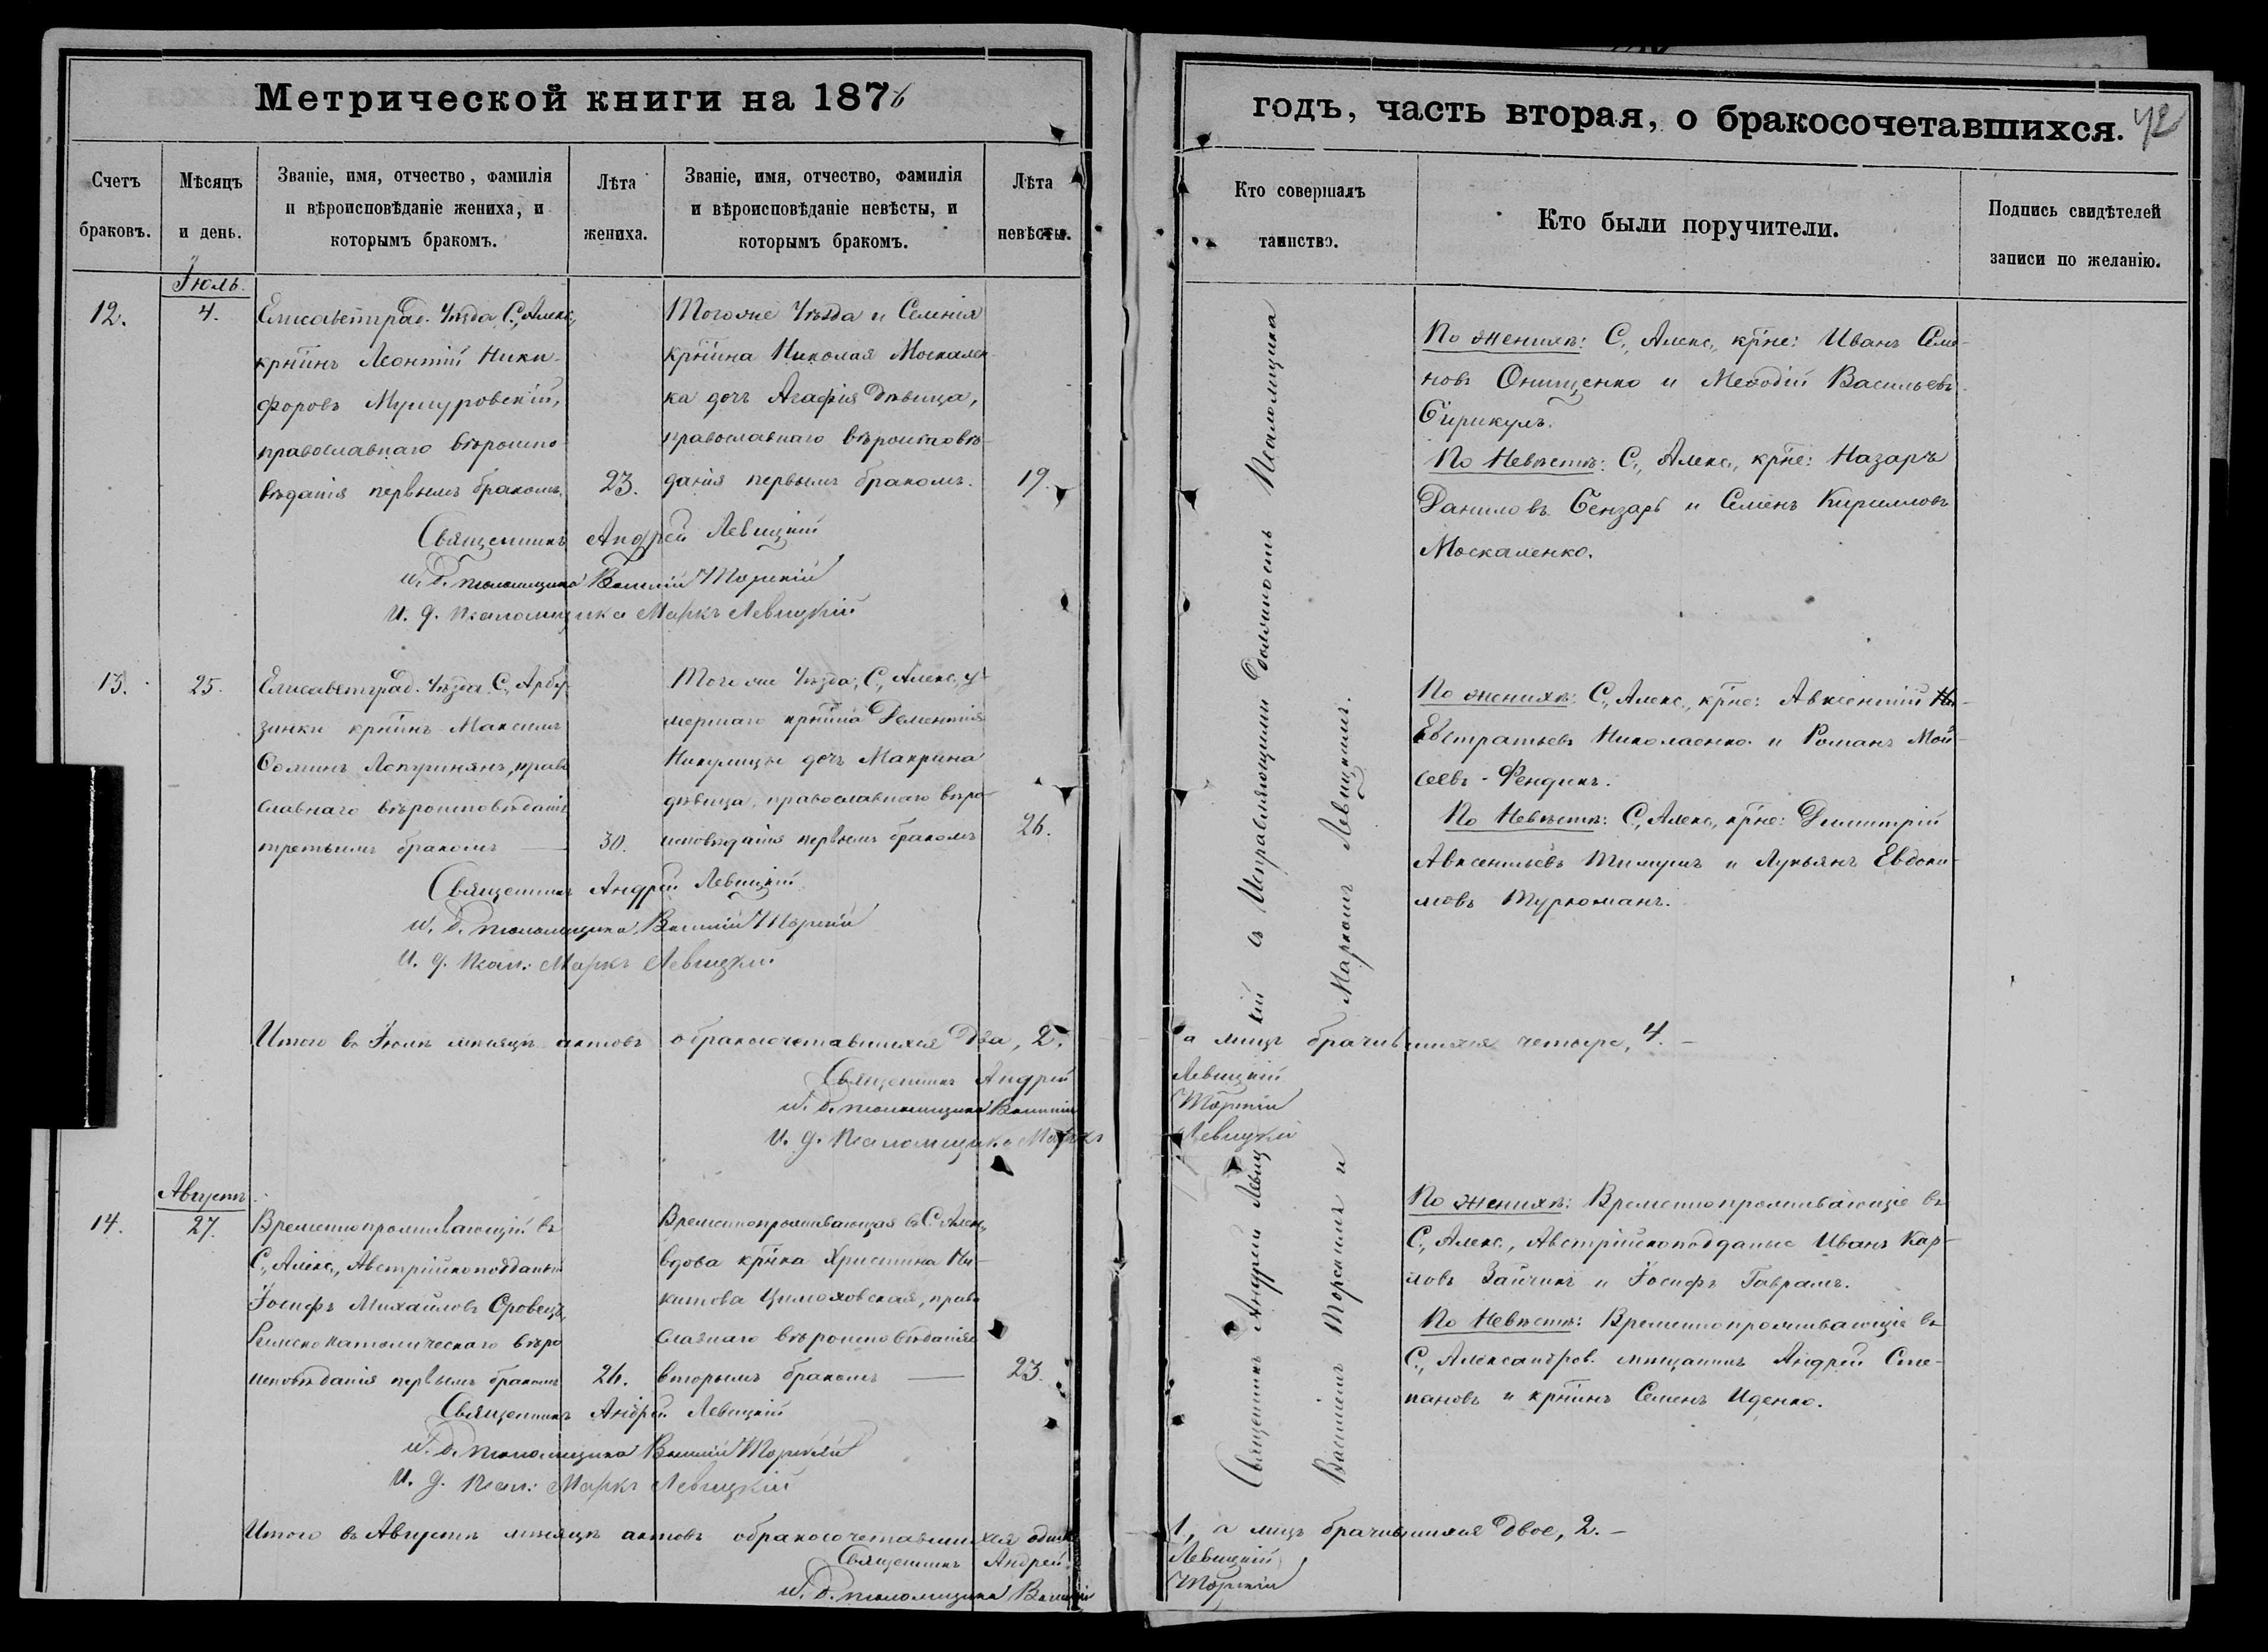 Метрической книги на 1876
годъ, часть вторая, о бракосочетавшихся. 42
Счетъ браковъ.
Мѣсяцъ и день.
Званіе, имя, отчество, фамилія и вѣроисповѣданіе жениха, и которымъ бракомъ.
Лѣта жениха.
Званіе, имя, отчество, фамилія и вѣроисповѣданіе невѣсты, и которымъ бракомъ.
Лѣта невѣсты.
Кто совершалъ таинство.
Кто были поручители.
Подпись свидѣтелей записи по желанію.
Іюль.
12.
4.
Елисаветград. Уѣзда С., Алекс.,
крнинъ Леонтій Ники-
форовъ Мушуровскій,
православнаго вѣроиспо-
вѣданія первымъ бракомъ.
23.
Тогоже Уѣзда и Селенія
крнина Николая Москален-
ка дочь Агафія дѣвица,
православнаго вѣроисповѣ-
данія первымъ бракомъ.
19.
Священникъ Андрей Левицкій
И. д. псаломщика Василій Торскій
И. д. Псаломщика Маркъ Левицкій
По женихѣ: С., Алекс., крне: Иванъ Семе-
новъ Онищенко и Меѳодій Васильевъ
Бирикулъ.
По Невѣстѣ: С., Алекс., крне: Назаръ
Даниловъ Бензарь и Семенъ Кирилловъ
Москаленко.
13.
25.
Елисаветград. Уѣзда С., Арбу-
зинки крнинъ Максимъ
Ѳоминъ Лопушнянъ, право
славнаго вѣроисповѣданія
третьимъ бракомъ
30.
Тогоже Уѣзда, С., Алекс. у-
мершаго крнина Дементія
Никулицы дочь Макрина
дѣвица, православнаго вѣро-
исповѣданія первымъ бракомъ
26.
Священникъ Андрей Левицкій
И. д. псаломщика Василій Торскій
И. д. Псал: Маркъ Левицкій
По женихѣ: С., Алекс., крне: Авксентій
Евстратьевъ Николаенко и Романъ Мой-
сеевъ Фендикъ.
По Невѣстѣ: С., Алекс., крне: Димитрій
Авксентьевъ Тимушъ и Лукьянъ Евдоки-
мовъ Туркоманъ.
Итого въ Іюлѣ мѣсяцѣ актовъ о бракосочетавшихся два, 2. а лицъ брачившихся четыре, 4.
Священникъ Андрей Левицкій
И. д. псаломщика Василій Торскій
И. д. Псаломщика Маркъ Левицкій
Августъ.
14.
27.
Временнопроживающій въ
С., Алекс., Австрійскоподданый
Іосифъ Михайловъ Оровецъ,
Римскокатолическаго вѣро
исповѣданія первымъ бракомъ
26.
Временнопроживающая въ С. Алек.,
вдова крнка Христина Ни-
китова Цимоховская, право
славнаго вѣроисповѣданія
вторымъ бракомъ
23.
Священникъ Андрей Левицкій
И. д. псаломщика Василій Торскій
И. д. Псал: Маркъ Левицкій
По женихѣ: Временнопроживающіе въ
С., Алекс., Австрійскоподданые Иванъ Кар-
ловъ Зайчикъ и Іосифъ Гаврамъ.
По Невѣстѣ: Временнопроживающіе въ
С., Александров. мѣщанинъ Андрей Сте-
пановъ и крнинъ Семенъ Иденко.
Итого въ Августѣ мѣсяцѣ актовъ о бракосочетавшихся одинъ 1, а лицъ брачившихся двое, 2.
Священникъ Андрей Левицкій
И. д. псаломщика Василій Торскій
Священникъ Андрей Левицкій съ Исправляющими Должность Псаломщика
Василіемъ Торскимъ и Маркомъ Левицкимъ.